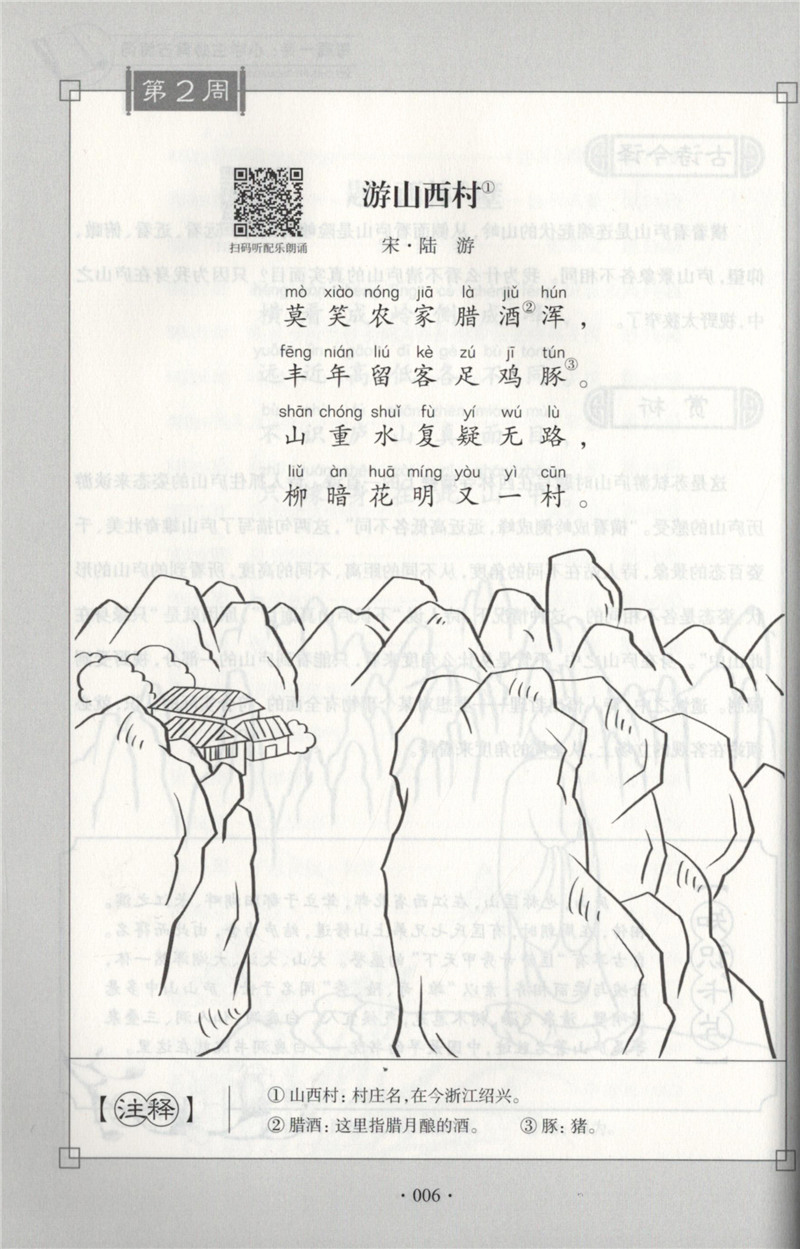 第2周
游山西村①
扫码听配乐朗诵
宋·陆 游
mò xiào nóng jiā là jiǔ hún
莫笑农家腊酒②浑，
fēng nián liú kè zú jī tún
丰年留客足鸡豚③。
shān chóng shuǐ fù yí wú lù
山重水复疑无路，
liǔ àn huā míng yòu yì cūn
柳暗花明又一村。
【注释】
①山西村：村庄名，在今浙江绍兴。
②腊酒：这里指腊月酿的酒。 ③豚：猪。
·006·